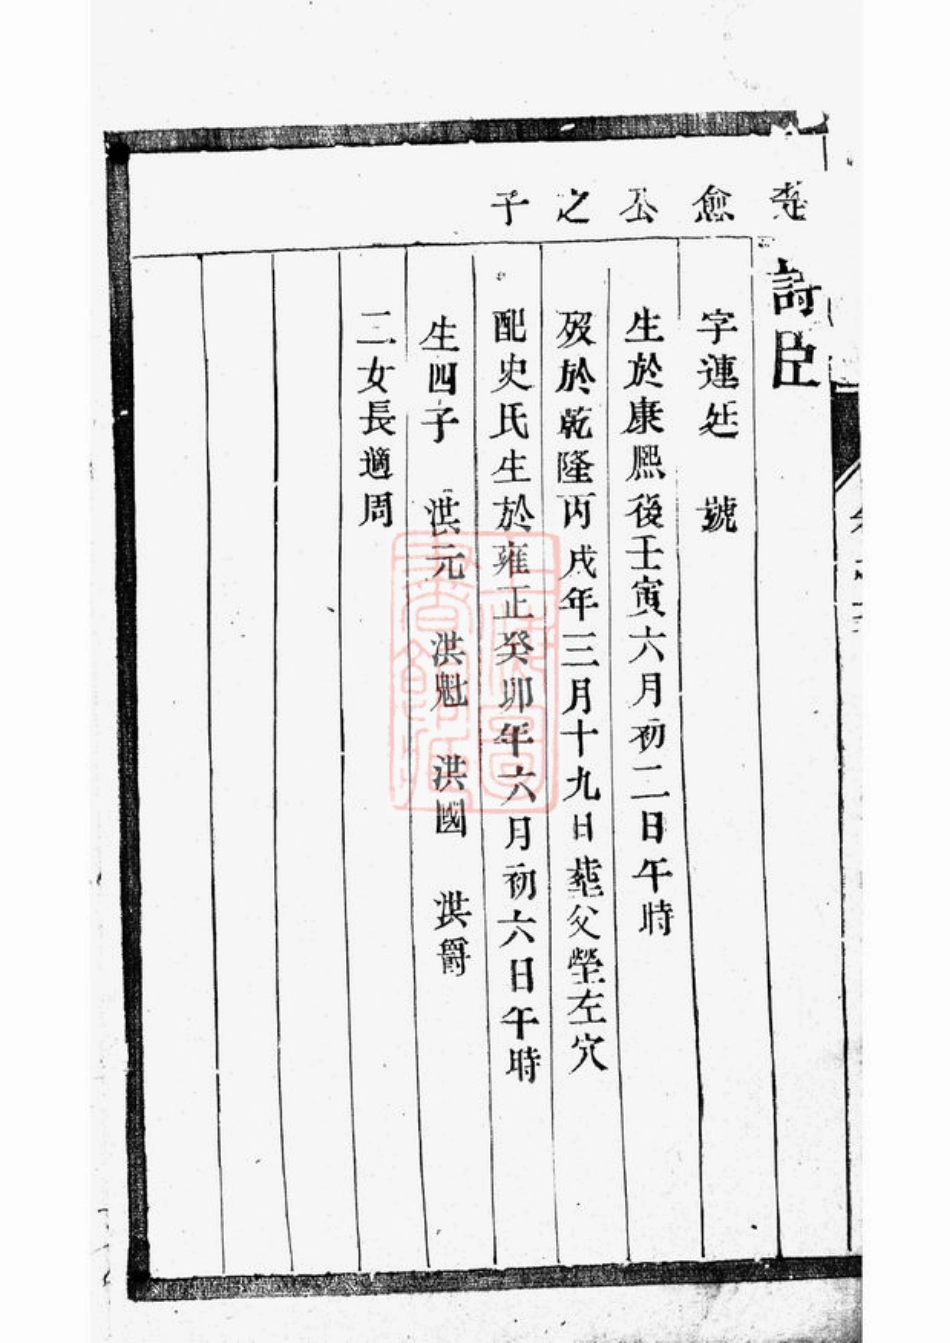 愈公之子
詩臣
字連廷 號
生於康熙後壬寅六月初二日午時
歿於乾隆丙戌年三月十九日葬父塋左穴
配史氏生於雍正癸卯年六月初六日午時
生四子 洪元 洪魁 洪國 洪爵
二女長適周